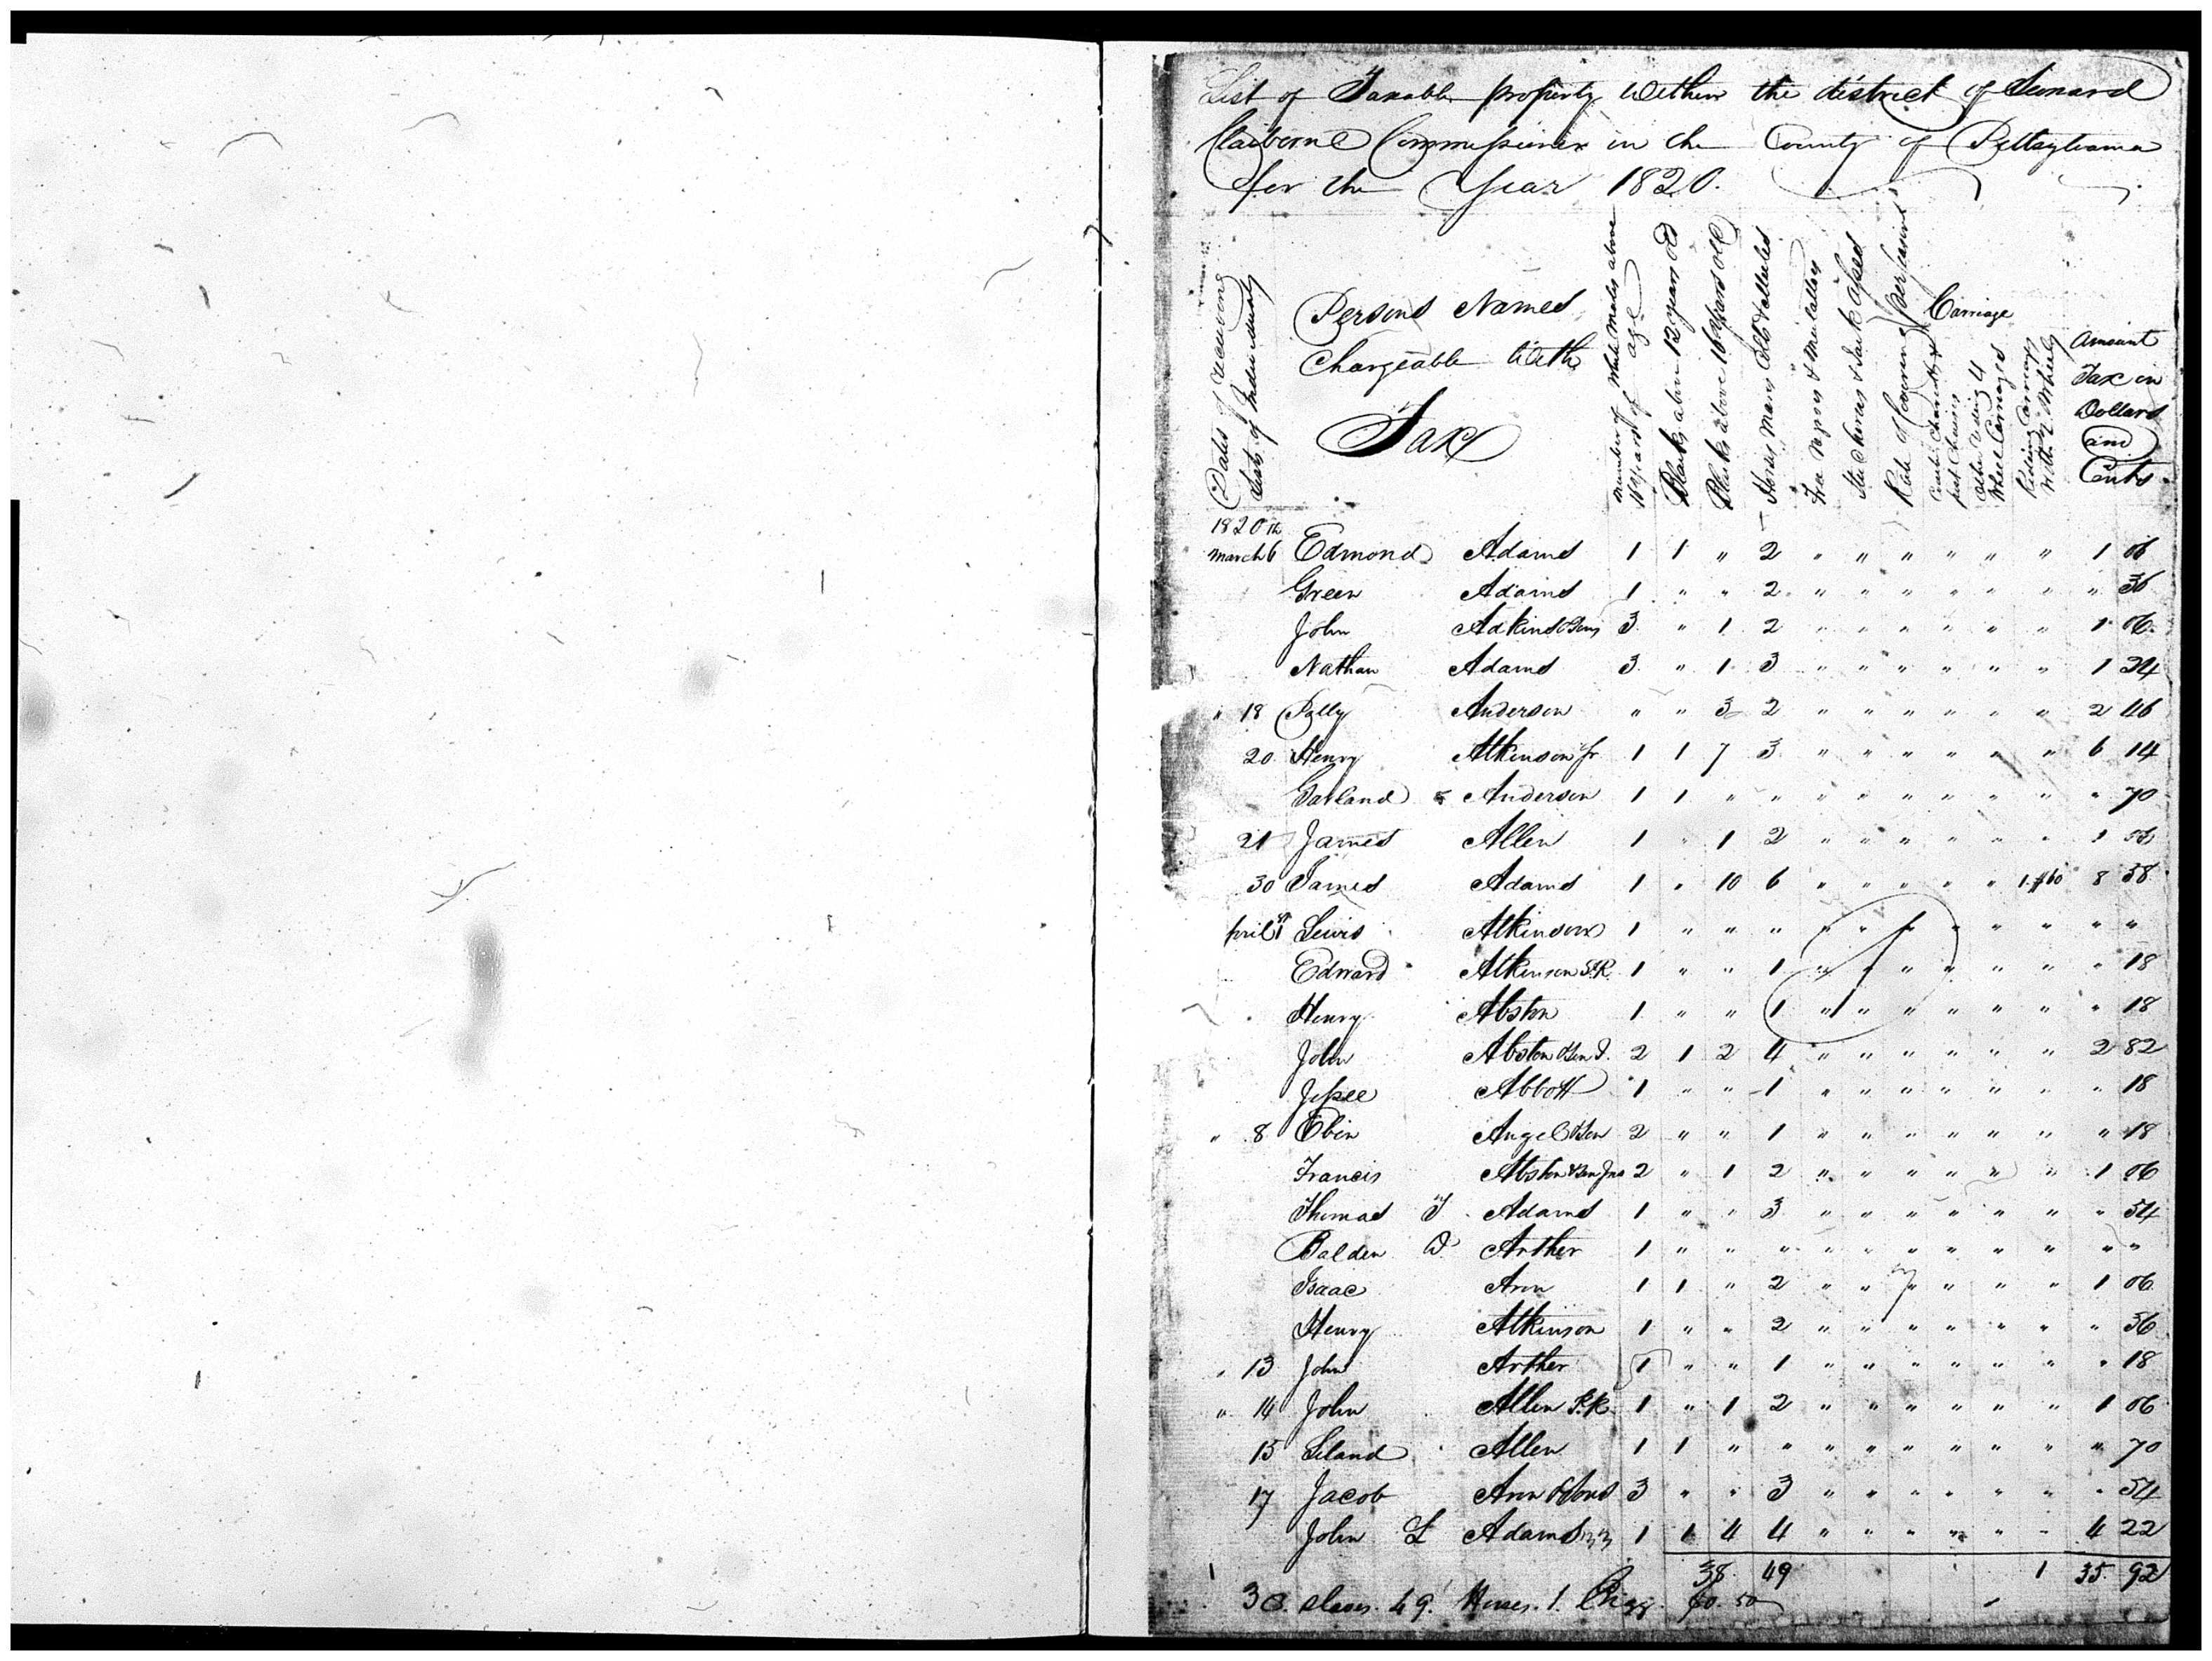 List of Taxable property within the district of Leonard
Claiborne Commissioner in the County of Pittsylvania
for the Year 1820.
Dates of receiving Lists of Individuals
Persons Names
Chargeable With
Tax
Number of White Males above 16 years of age
Blacks above 12 years old
Blacks above 16 years old
Horses Mares Colts & Mules
Free Negroes & Mulattoes
Rate of Covering per
Carriage
Other riding 4 Wheel Carriages
Riding Carriages With 2 Wheels
Amount Tax in Dollars and Cents
1820 th
March 6 Edmond Adams 1 1 " 2 " " " " " " 1 06
Green Adams 1 " " 2 " " " " " " " 36
John Adkins & Sons 3 " 1 2 " " " " " " 1 06
Nathan Adams 3 " 1 3 " " " " " " 1 24
" 18 Polly Anderson " " 3 2 " " " " " " 2 46
20 Henry Atkinson Jr 1 1 7 3 " " " " " " 6 14
Garland Anderson 1 1 " " " " " " " " " 70
21 James Allen 1 " 1 2 " " " " " " 1 06
30 James Adams 1 " 10 6 " " " " " 1 $60 8 58
pril 1st Lewis Atkinson 1 " " " " " " " " " " "
Edward Atkinson S.R. 1 " " 1 " " " " " " " 18
Henry Abston 1 " " 1 " " " " " " " 18
John Abston & Son J. 2 1 2 4 " " " " " " 2 82
Jessee Abbott 1 " " 1 " " " " " " " 18
" 8 Ebin Angel & Son 2 " " 1 " " " " " " " 18
Francis Abston & Son Jno 2 " 1 2 " " " " " " 1 06
Thomas T Adams 1 " " 3 " " " " " " " 54
Balden D Arther 1 " " " " " " " " " " "
Isaac Ann 1 1 " 2 " " " " " " 1 06
Henry Atkinson 1 " " 2 " " " " " " " 36
" 13 John Arther 1 " " 1 " " " " " " " 18
" 14 John Allen S.R. 1 " 1 2 " " " " " " 1 06
15 Leland Allen 1 1 " " " " " " " " " 70
17 Jacob Ann & Sons 3 " " 3 " " " " " " " 54
John L Adams 1 1 4 4 " " " " " " 4 22
38 49 1 35 92
38 slaves. 49. Horses. 1. Gigg. 60. 50